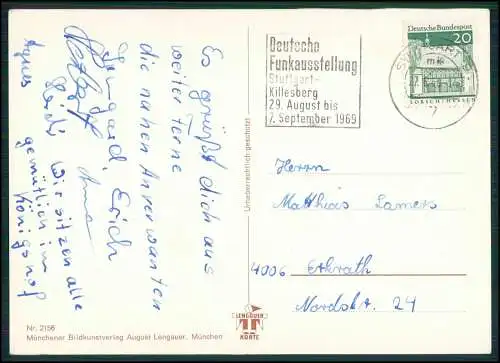 Es grüßt dich aus
weiter Ferne
die nahen Anverwanten
Irmgard, Erich
Herbert Anna
Heidi
Agnes
wir sitzen alle
gemütlich im
Königshof
Deutsche
Funkausstellung
Stuttgart-
Killesberg
29. August bis
7. September 1969
Deutsche Bundespost
20
LORSCH/HESSEN
Urheberrechtlich geschützt
Herrn
Matthias Lamers
4006 Erkrath
Nordstr. 24
LENGAUER
KARTE
Nr. 2156
Münchener Bildkunstverlag August Lengauer, München